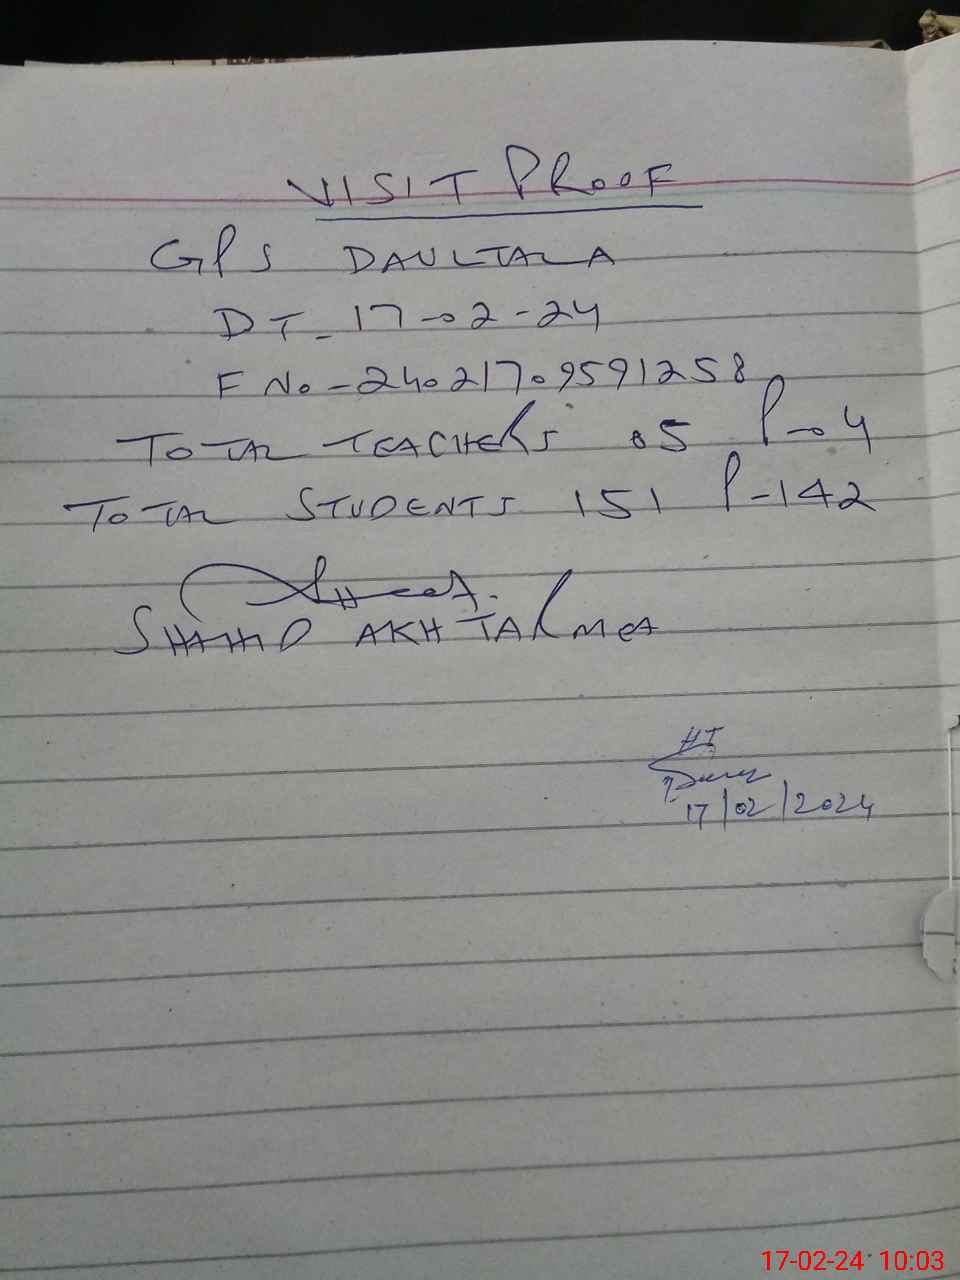 VISIT PROOF
GPS DAULTALA
DT- 17-02-24
F No - 24021709591258
TOTAL TEACHERS 05 P-04
TOTAL STUDENTS 151 P-142
SHAHID AKHTAR MEA
HT
17/02/2024
17-02-24 10:03